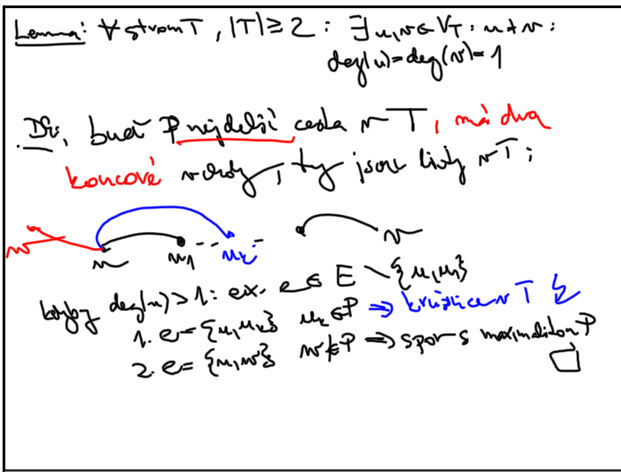 Lemma: ∀ strom T, |T| ≥ 2 : ∃ u,v ∈ V_T : u ≠ v :
deg(u) = deg(v) = 1
Dk, buď P nejdelší cesta v T, má dva
koncové vrcholy, ty jsou listy v T:
w u u₁ uᵢ v
kdyby deg(u) > 1 : ex. e ∈ E \ {u,u₁}
1. e = {u,uᵢ} uᵢ ∈ P ⇒ kružnice v T ↯
2. e = {u,w} w ∉ P ⇒ spor s maximalitou P
□